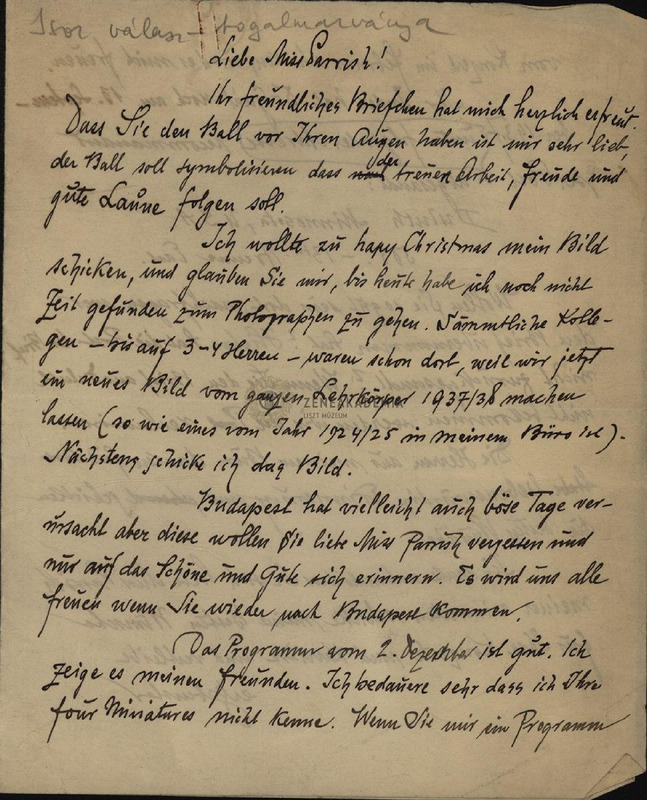 Isoz válasz-fogalmazványa
Liebe Miss Parrish!
Ihr freundliches Briefchen hat mich herzlich erfreut.
Dass Sie den Ball vor Ihren Augen haben ist mir sehr lieb,
der Ball soll symbolisieren dass der treuen Arbeit, freude und
gute Laune folgen soll.
Ich wollte zu hapy Christmas mein Bild
schicken, und glauben Sie mir, bis heute habe ich noch nicht
Zeit gefunden zum Photographen zu gehen. Sämmtliche Kolle-
gen – bis auf 3–4 Herren – waren schon dort, weil wir jetzt
ein neues Bild vom ganzen Lehrkörper 1937/38 machen
ZENEAKADÉMIA
LISZT MÚZEUM
lassen (so wie eines vom Jahr 1924/25 in meinem Büro ist).
Nächstens schicke ich das Bild.
Budapest hat vielleicht auch böse Tage ver-
ursacht aber diese wollen Sie liebe Miss Parrish vergessen und
nur auf das Schöne und Gute sich erinnern. Es wird uns alle
freuen wenn Sie wieder nach Budapest kommen.
Das Programm vom 2. Dezember ist gut. Ich
zeige es meinen freunden. Ich bedauere sehr dass ich Ihre
four Miniatures nicht kenne. Wenn Sie mir ein Programm